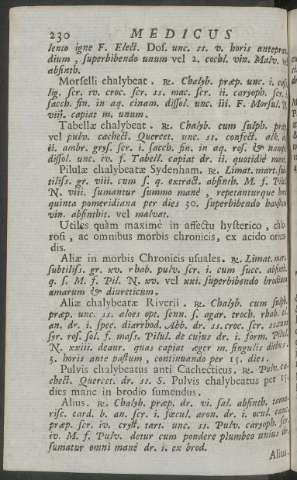 230 MEDICUS
lento igne F. Elect. Dos. unc. ss. v. horis ante
dium, superbibendo unum vel 2. cochl. vin. Malv. vel
absinth.
Morselli chalybeat. ℞. Chalyb. præp. unc. i.
lig. scr. iv. croc. scr. ss. mac. scr. ii. caryoph. scr.
sacch. fin. in aq. cinam. dissol. unc. iii. F. Morsul. N.
viij. capiat m. unum.
Tabellæ chalybeat. ℞. Chalyb. cum sulph. præp.
vel pulv. cachect. Quercet. unc. ss. confect. alk.
ambr. grys. scr. i. sacch. fin. in aq. ros. &
dissol. unc. iv. f. Tabell. capiat dr. ii. quotidiè mane.
Pilulæ chalybeatæ Sydenham. ℞. Limat. mart. sub-
tiliss. gr. viii. cum s. q. extract. absinth. M. f. Pil.
N. viii. sumantur summo manè, repetanturque hora
quinta pomeridiana per dies 30. superbibendo haustum
vin. absinthit. vel malvat.
Utiles quàm maximè in affectu hysterico, chlo-
rosi, ac omnibus morbis chronicis, ex acido oriun-
dis.
Aliæ in morbis Chronicis usuales. ℞. Limat. mar.
subtiliss. gr. xv. rhab. pulv. scr. i. cum succ. absinth.
q. s. M. f. Pil. N. xv. vel xxi. superbibendo brodium
amarum & diureticum.
Aliæ chalybeatæ Riverii. ℞. Chalyb. cum sulph.
præp. unc. ss. aloes opt. senn. s. agar. troch. rhab. el.
an. dr. i. spec. diarrhod. Abb. dr. ss. croc. scr.
syr. ros. sol. f. mass. Pilul. de cujus dr. i. form. Pilul.
N. xxiii. deaur. quas capiat æger m. singulis diebus
5. horis ante pastum, continuando per 15. dies.
Pulvis chalybeatus anti Cachecticus. ℞. Pulv. ca-
chect. Quercet. dr. ss. S. Pulvis chalybeatus per 15
dies mane in brodio sumendus.
Alius. ℞. Chalyb. præp. dr. vi. sal. absinth.
risc. card. b. an. scr. i. fæcul. aron. dr. i. ocul. cancr.
præp. scr. iv. cryst. tart. unc. ss. Pulv. caryoph. scr.
iv. M. f. Pulv. detur cum pondere plumbeo unius dr.
sumatur omni manè dr. i. ex brod.
Alius